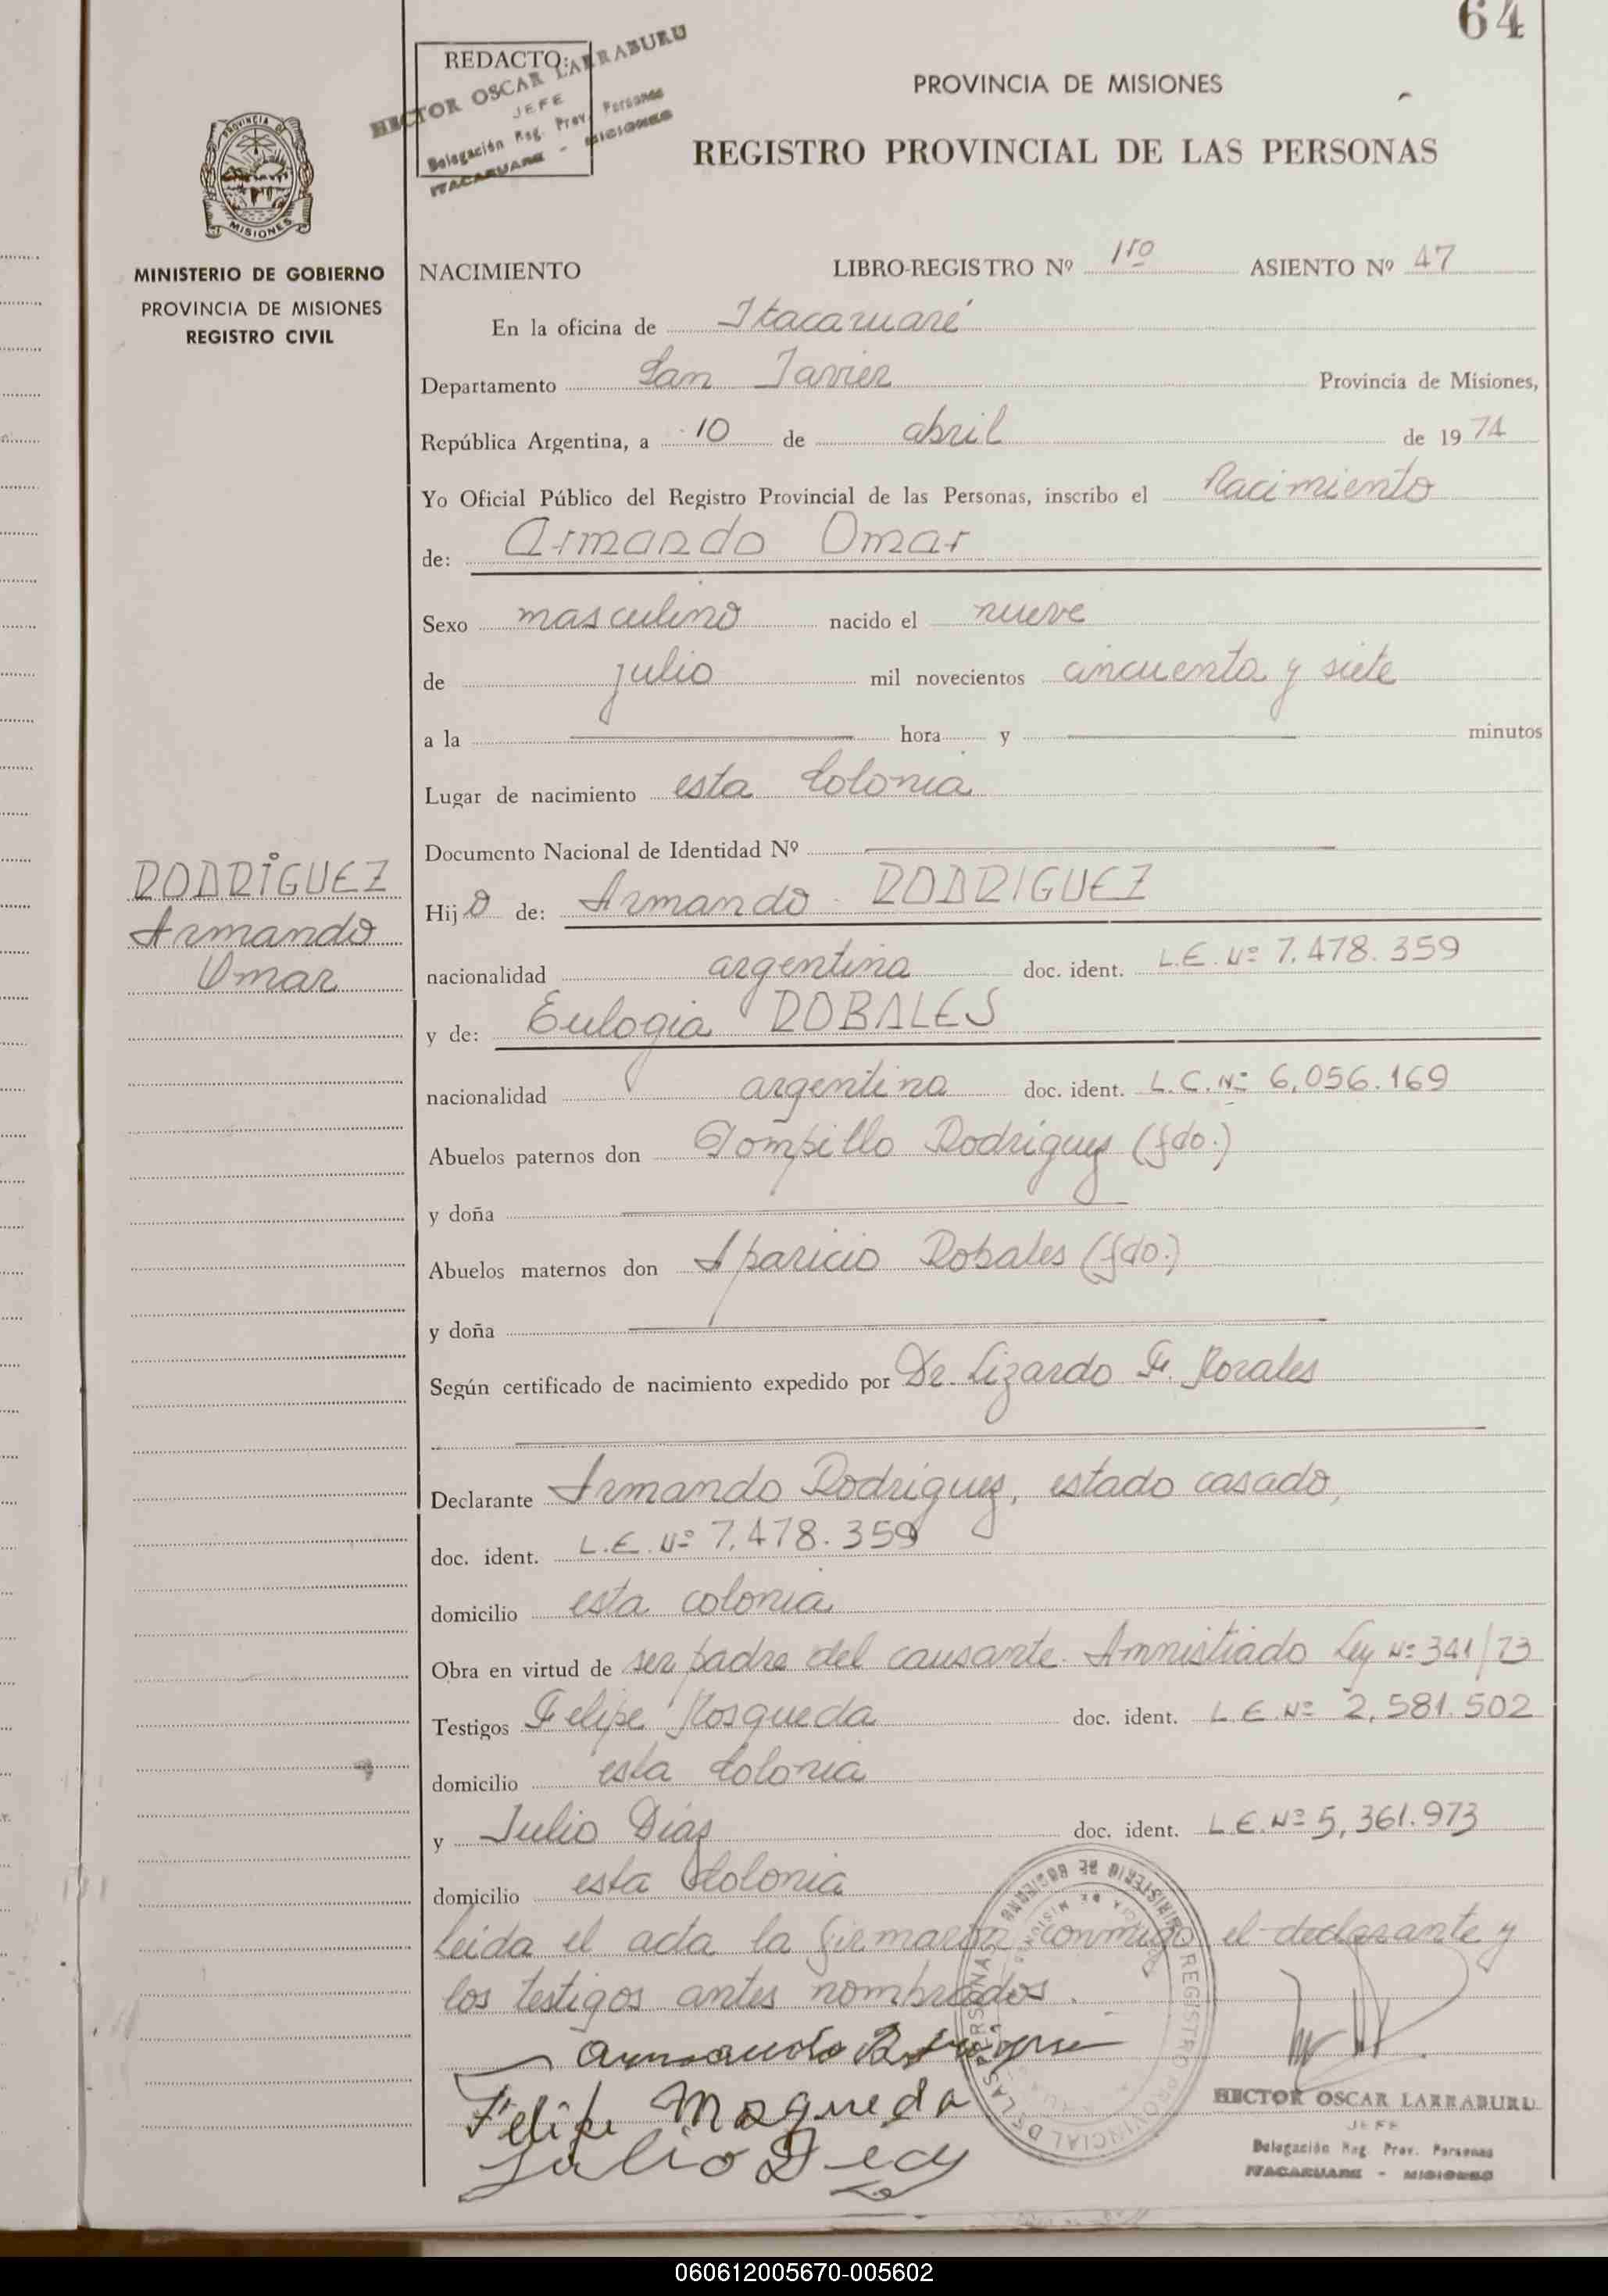 64
REDACTO:
HECTOR OSCAR LARRABURU
JEFE
Delegación Reg. Prov. Personas
ITACARUARE - MISIONES
PROVINCIA DE MISIONES
REGISTRO PROVINCIAL DE LAS PERSONAS
PROVINCIA DE
MISIONES
MINISTERIO DE GOBIERNO
PROVINCIA DE MISIONES
REGISTRO CIVIL
NACIMIENTO LIBRO-REGISTRO Nº 1ro ASIENTO Nº 47
En la oficina de Itacaruaré
Departamento San Javier Provincia de Misiones,
República Argentina, a 10 de abril de 1974
Yo Oficial Público del Registro Provincial de las Personas, inscribo el Nacimiento
de: Armando Omar
Sexo masculino nacido el nueve
de julio mil novecientos cincuenta y siete
a la hora y minutos
Lugar de nacimiento esta Colonia
Documento Nacional de Identidad Nº
RODRIGUEZ
Armando
Omar
Hijo de: Armando RODRIGUEZ
nacionalidad argentina doc. ident. L.E. Nº 7.478.359
y de: Eulogia ROBALES
nacionalidad argentina doc. ident. L.C. Nº 6,056.169
Abuelos paternos don Pompillo Rodriguez (fdo.)
y doña
Abuelos maternos don Aparicio Robales (fdo.)
y doña
Según certificado de nacimiento expedido por Dr. Lizardo F. Morales
Declarante Armando Rodriguez, estado casado,
doc. ident. L.E. Nº 7.478.359
domicilio esta colonia
Obra en virtud de ser padre del causante. Amnistiado Ley Nº 341/73
Testigos Felipe Mosqueda doc. ident. L.E. Nº 2,581.502
domicilio esta Colonia
y Julio Díaz doc. ident. L.E. Nº 5,361.973
domicilio esta Colonia
Leida el acta la firmaron conmigo el declarante y
los testigos antes nombrados.
MINISTERIO DE GOBIERNO
REGISTRO PROVINCIAL DE LAS PERSONAS
Armando
Felipe Mosqueda
Julio
HECTOR OSCAR LARRABURU
JEFE
Delegación Reg. Prov. Personas
ITACARUARE - MISIONES
060612005670-005602